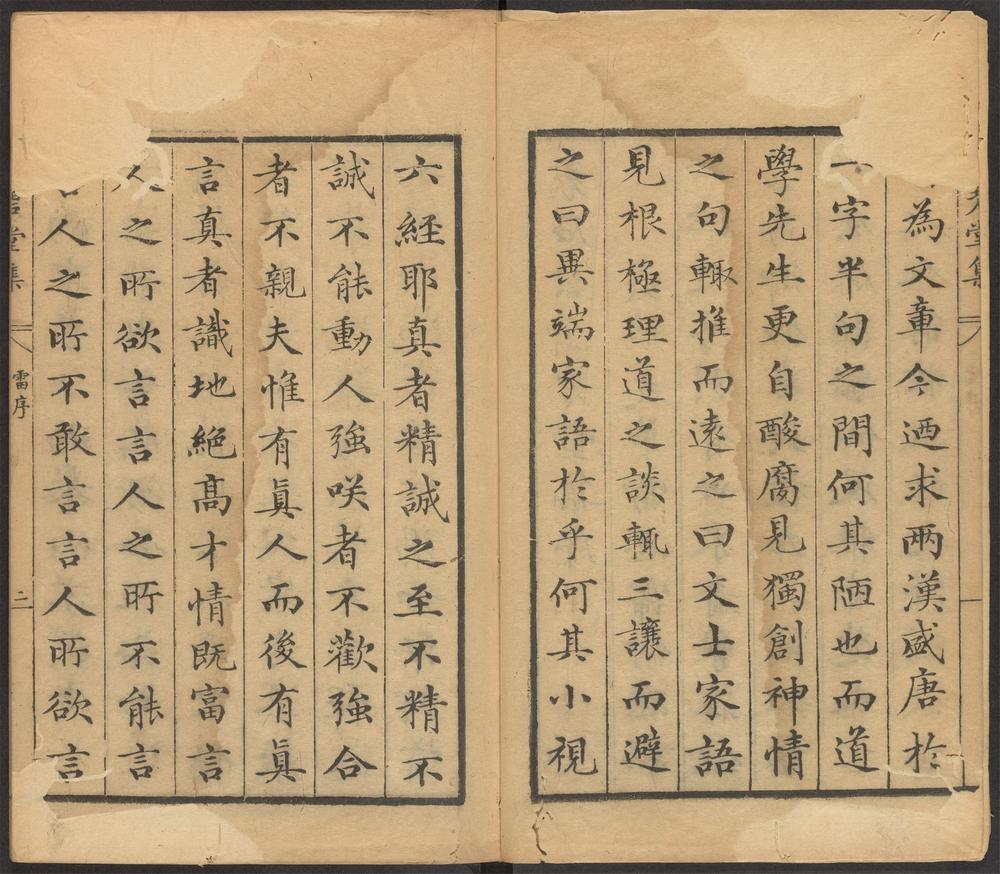 堂集
為文章今迺求兩漢盛唐於
一字半句之間何其陋也而道
學先生更自酸腐見獨創神情
之句輙推而遠之曰文士家語
見根極理道之談輙三讓而避
之曰異端家語於乎何其小視
六經耶真者精誠之至不精不
誠不能動人強咲者不歡強合
者不親夫惟有眞人而後有眞
言真者識地絕高才情既富言
人之所欲言言人之所不能言
言人之所不敢言言人所欲言
堂集
雷序
二